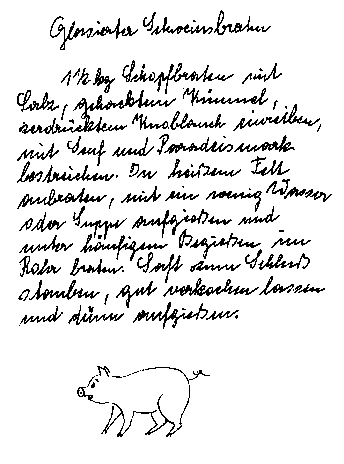 Glasierter Schweinsbraten
1 1/2 kg Schopfbraten mit
Salz, gehacktem Kümmel,
zerdrücktem Knoblauch einreiben,
mit Senf und Paradeismark
bestreichen. In heißem Fett
anbraten, mit ein wenig Wasser
oder Suppe aufgießen und
unter häufigem Begießen im
Rohr braten. Saft zum Schluß
stauben, gut verkochen lassen
und dünn aufgießen.